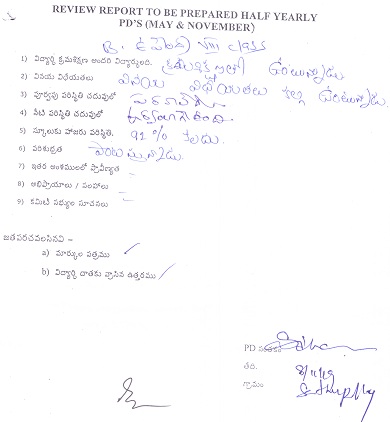 REVIEW REPORT TO BE PREPARED HALF YEARLY
PD'S (MAY & NOVEMBER)
B. ఉపేంద్ర VIII class
1) విద్యార్థి క్రమశిక్షణ అందరి విద్యార్థులది. క్రమశిక్షణతో ఉంటున్నాడు
2) వినయ విధేయతలు వినయ విధేయతలు కల్గి ఉంటున్నాడు.
3) పూర్వపు పరిస్థితి చదువులో పరవాలేదు
4) నేటి పరిస్థితి చదువులో
5) స్కూలుకు హాజరు పరిస్థితి. 92 % కలదు.
6) పరిశుభ్రత పాటిస్తున్నాడు.
7) ఇతర అంశములలో ప్రావీణ్యత –
8) అభిప్రాయాలు / సలహాలు –
9) కమిటీ సభ్యుల సూచనలు –
జతపరచవలసినవి –
a) మార్కుల పత్రము ✓
b) విద్యార్థి దాతకు వ్రాసిన ఉత్తరము ✓
PD సంతకం
తేది. 8/11/19
గ్రామం